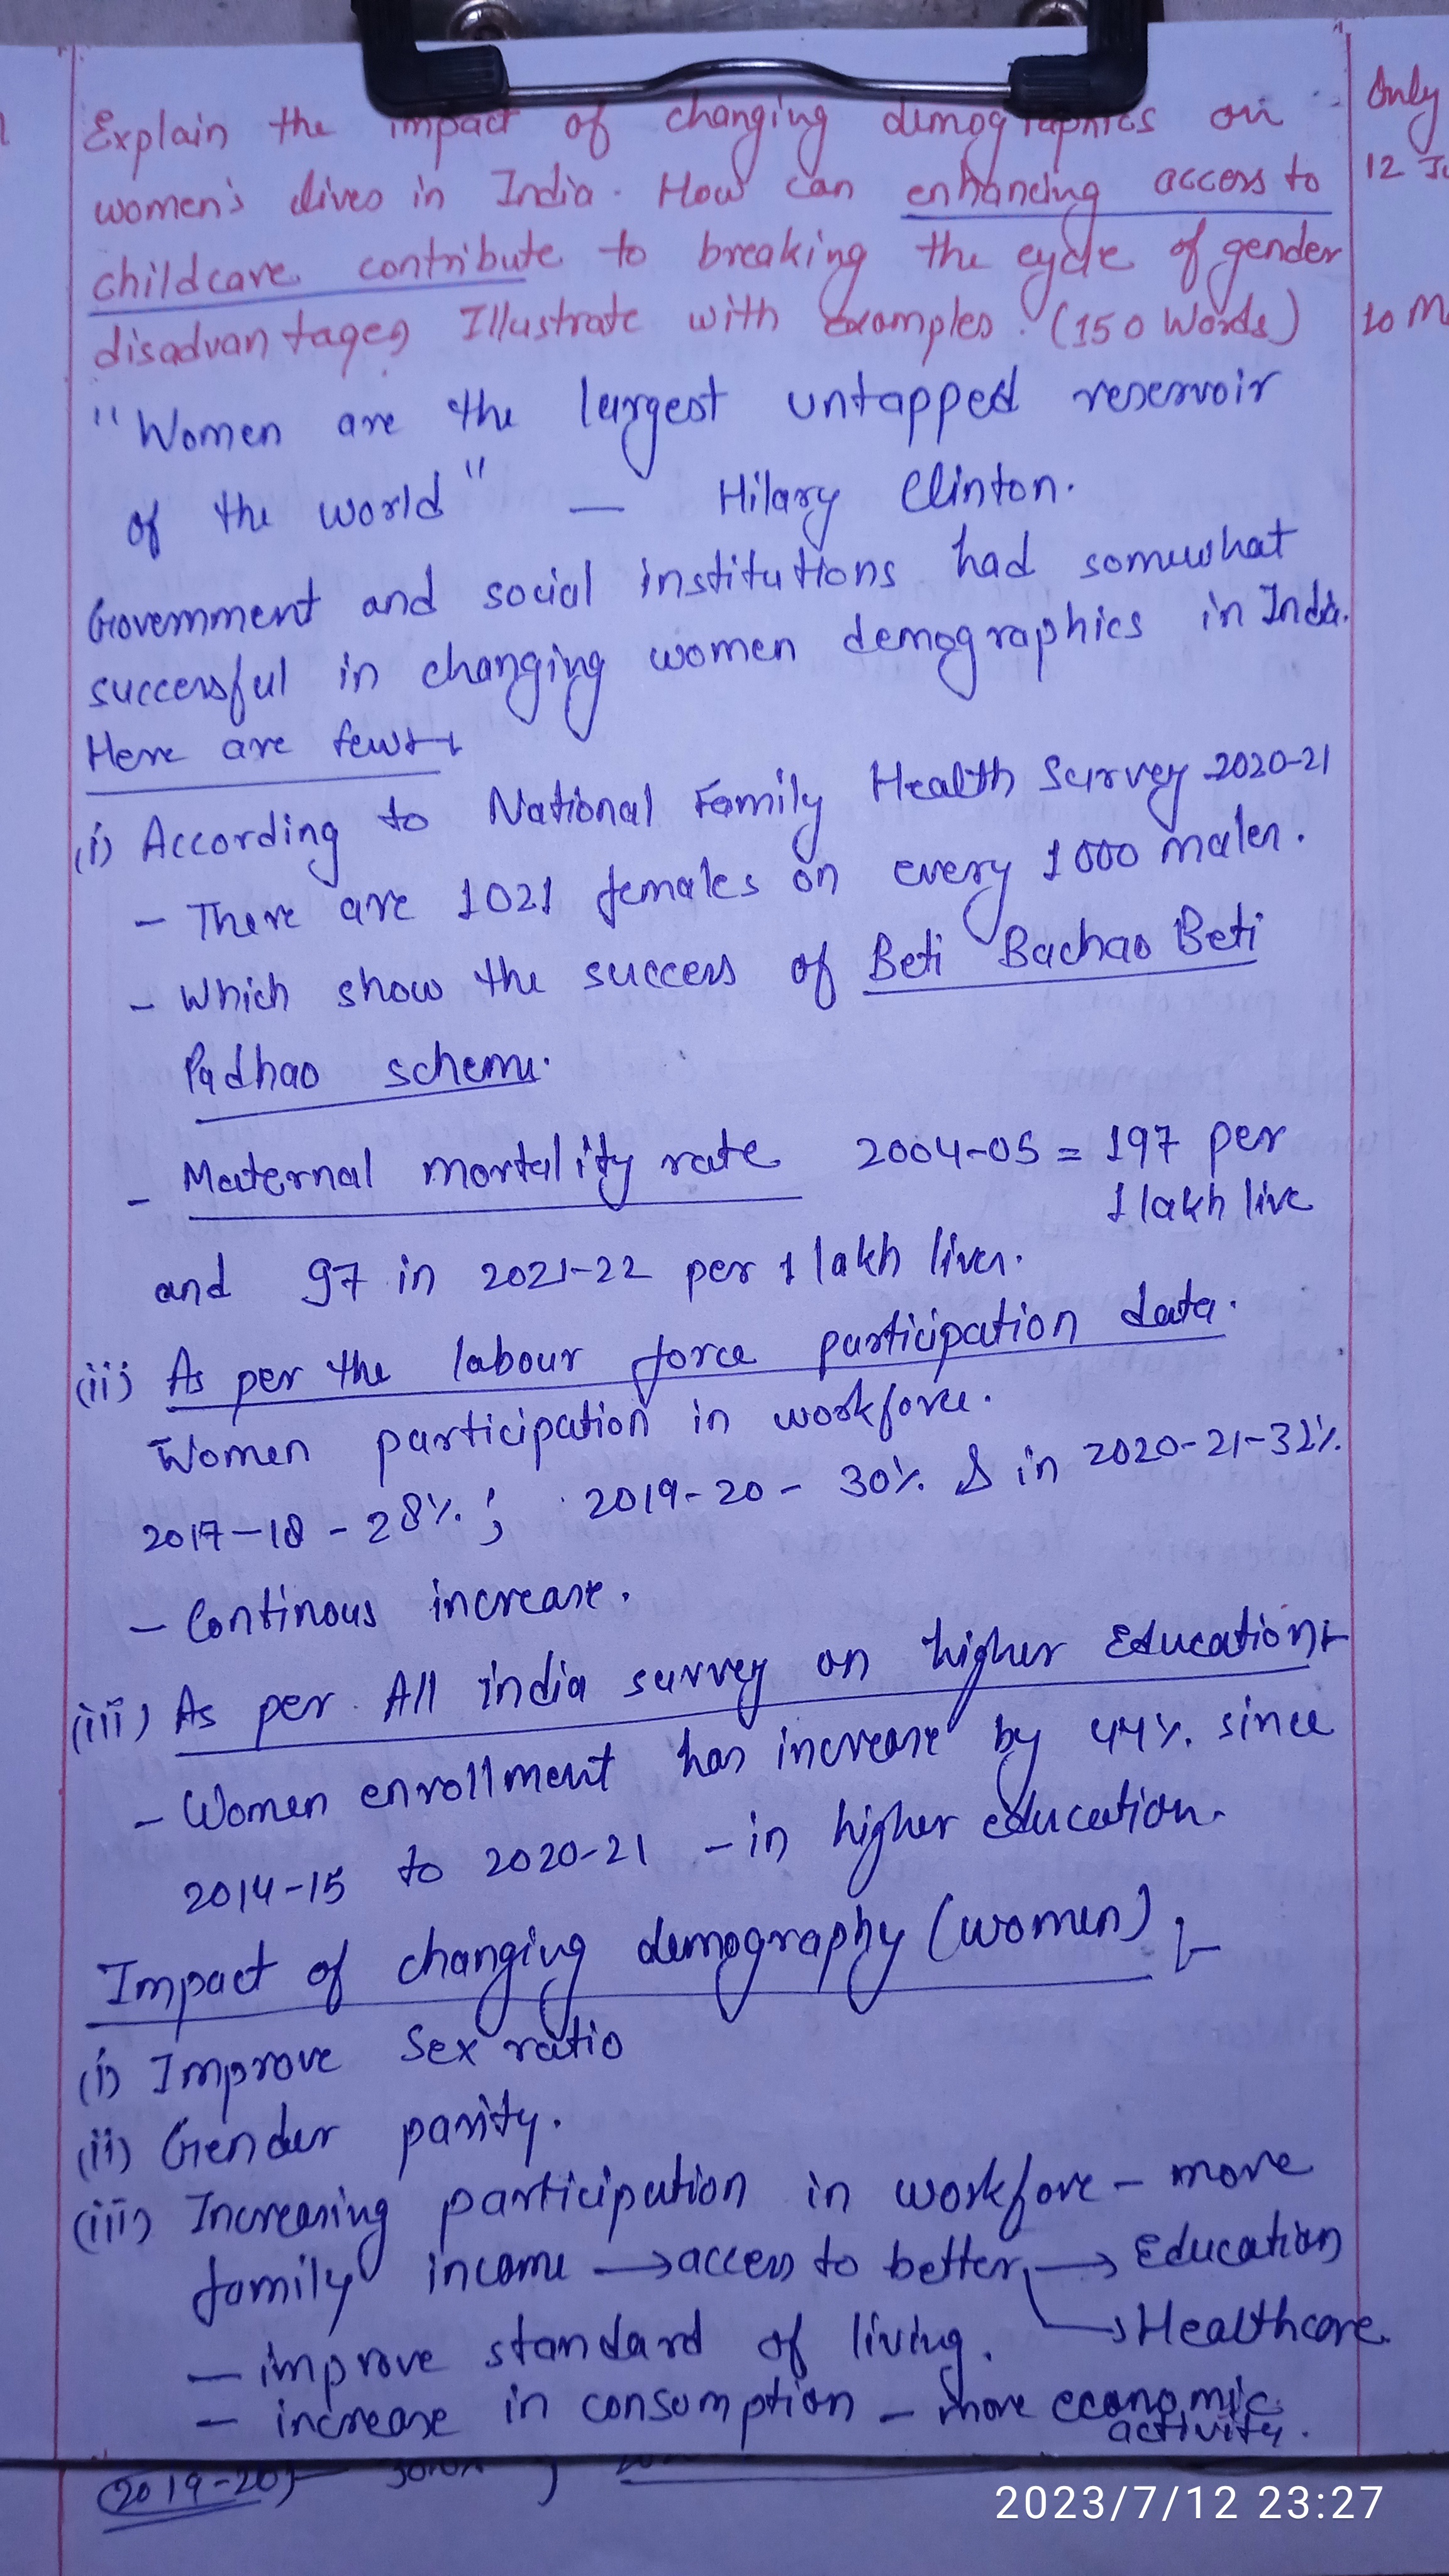 Explain the impact of changing demographics on
women's lives in India. How can enhancing access to
childcare contribute to breaking the cycle of gender
disadvantages, Illustrate with examples. (150 Words)
Only
12 Ju
10 M
"Women are the largest untapped reservoir
of the world" — Hilary Clinton.
Government and social institutions had somewhat
successful in changing women demographics in India.
Here are few:-
(i) According to National Family Health Survey 2020-21
- There are 1021 females on every 1000 males.
- Which show the success of Beti Bachao Beti
Padhao scheme.
- Maternal mortality rate 2004-05 = 197 per
1 lakh live
and 97 in 2021-22 per 1 lakh lives.
(ii) As per the labour force participation data.
Women participation in workforce.
2017-18 - 28%; 2019-20 - 30% & in 2020-21-32%
- Continous increase.
(iii) As per All india survey on higher Education:-
- Women enrollment has increase by 44% since
2014-15 to 2020-21 - in higher education.
Impact of changing demography (women) :-
(i) Improve Sex ratio
(ii) Gender parity.
(iii) Increasing participation in workfore - more
family income → access to better → Education
→ Healthcare
- improve standard of living.
- increase in consumption - more economic
activity.
(2019-20)
2023/7/12 23:27